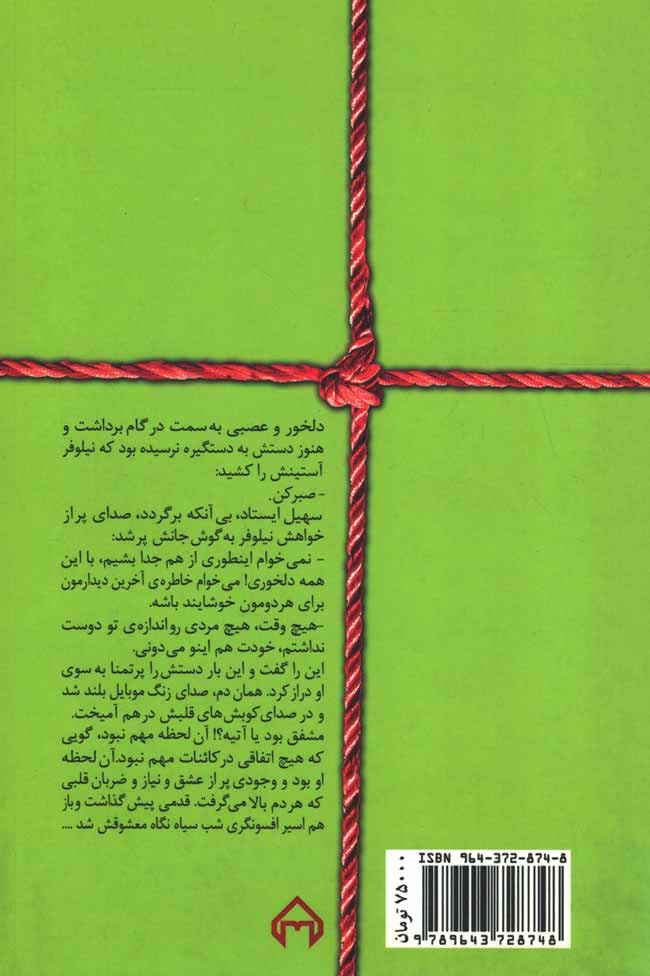 دلخور و عصبی به سمت در گام برداشت و
هنوز دستش به دستگیره نرسیده بود که نیلوفر
آستینش را کشید:
- صبرکن.
سهیل ایستاد، بی آنکه برگردد، صدای پر از
خواهش نیلوفر به گوش جانش پر شد:
- نمی‌خوام اینطوری از هم جدا بشیم، با این
همه دلخوری! می‌خوام خاطره‌ی آخرین دیدارمون
برای هردومون خوشایند باشه.
-هیچ وقت، هیچ مردی رو اندازه‌ی تو دوست
نداشتم، خودت هم اینو می‌دونی.
این را گفت و این بار دستش را پرتمنا به سوی
او دراز کرد. همان دم، صدای زنگ موبایل بلند شد
و در صدای کوبش‌های قلبش در هم آمیخت.
مشفق بود یا آتیه؟! آن لحظه مهم نبود، گویی
که هیچ اتفاقی در کائنات مهم نبود.آن لحظه
او بود و وجودی پر از عشق و نیاز و ضربان قلبی
که هر دم بالا می‌گرفت. قدمی پیش گذاشت و باز
هم اسیر افسونگری شب سیاه نگاه معشوقش شد ....
ISBN 964-372-874-8
۷۵۰۰۰ تومان
9 789643 728748